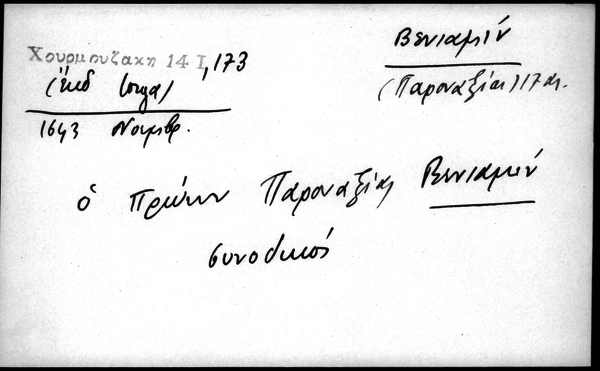 Χουρμουζακη 14 I, 173
Βενιαμίν
(Παροναξίας) 17 αι.
(ἔκδ
1643 Νοεμβρ.
ὁ πρώην Παροναξίας Βενιαμίν
συνοδικός